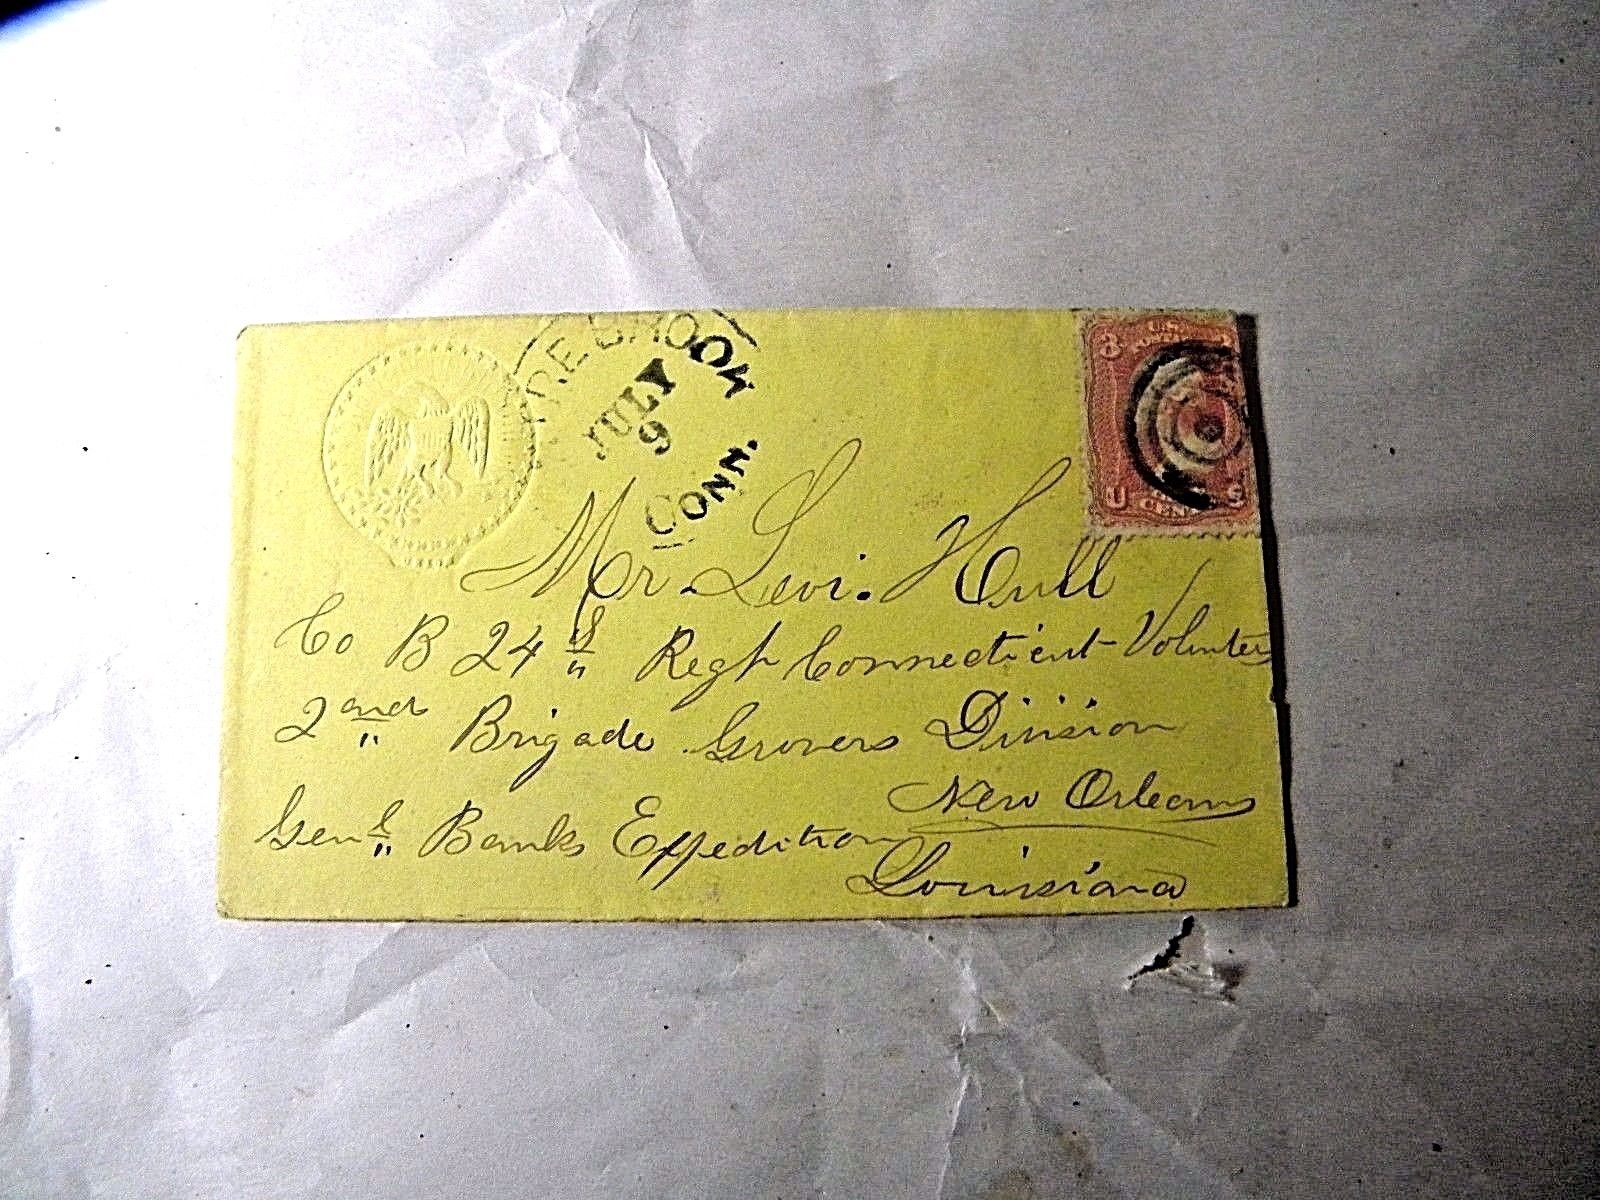 REBROOK
JULY
9
CONN.
3 U.S. 
U CENTS S
Mr. Levi. Hull
Co B 24th Regt Connecticut Volunters
2nd Brigade Grovers Division
New Orleans
Genl Banks Expedition
Louisiana